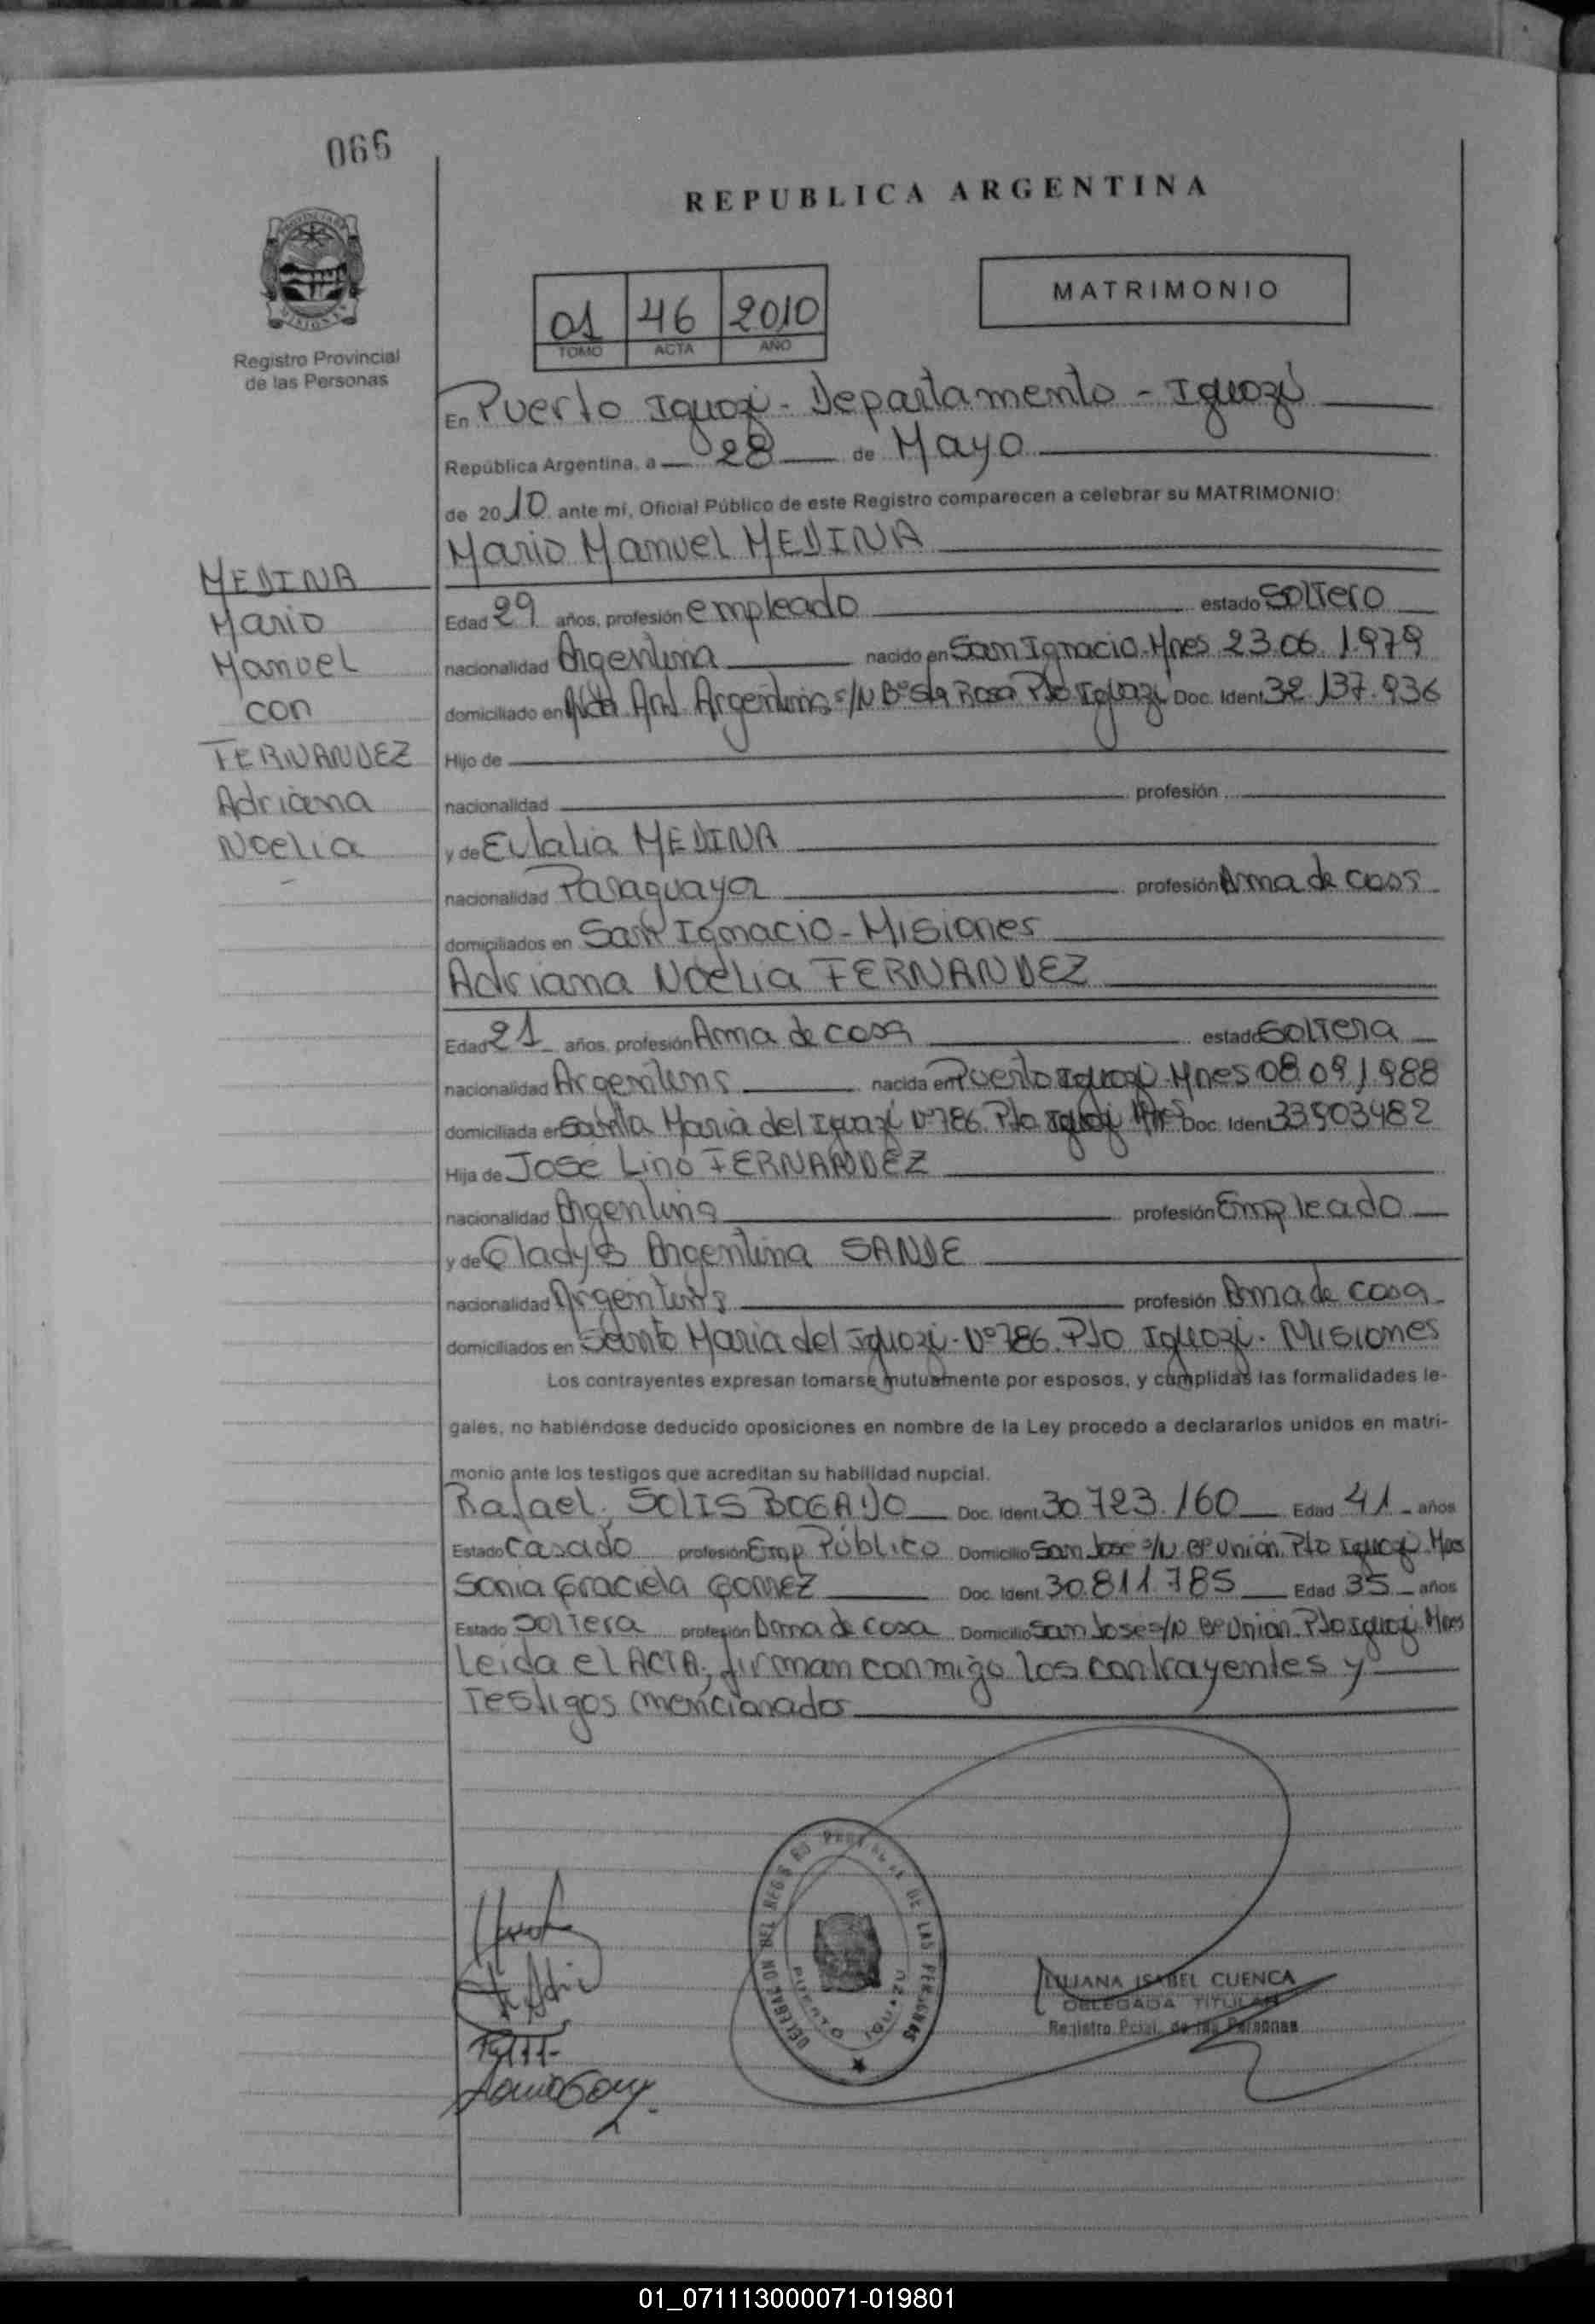 066
REPUBLICA ARGENTINA
Registro Provincial
de las Personas
01 46 2010
TOMO ACTA AÑO
MATRIMONIO
En Puerto Iguazú - Departamento - Iguazú
República Argentina, a 28 de Mayo
de 2010 ante mí, Oficial Público de este Registro comparecen a celebrar su MATRIMONIO:
Mario Manuel MEDINA
MEDINA
Mario
Manuel
con
FERNANDEZ
Adriana
Noelia
Edad 29 años, profesión empleado estado Soltero
nacionalidad Argentina nacido en San Ignacio - Mnes 23.06.1979
domiciliado en Argentina s/N Bº Sta Rosa Pto Iguazú Doc. Ident. 32.137.936
Hijo de
nacionalidad profesión
y de Eulalia MEDINA
nacionalidad Paraguaya profesión Ama de casa
domiciliados en San Ignacio - Misiones
Adriana Noelia FERNANDEZ
Edad 21 años, profesión Ama de casa estado Soltera
nacionalidad Argentina nacida en Puerto Iguazú - Mnes 08.09.1988
domiciliada en Santa María del Iguazú Nº 786. Pto Iguazú Mnes Doc. Ident. 33503482
Hija de José Lino FERNANDEZ
nacionalidad Argentina profesión Empleado
y de Gladys Argentina SANDE
nacionalidad Argentina profesión Ama de casa
domiciliados en Santa Maria del Iguazú - Nº 786. Pto Iguazú. Misiones
Los contrayentes expresan tomarse mutuamente por esposos, y cumplidas las formalidades le-
gales, no habiéndose deducido oposiciones en nombre de la Ley procedo a declararlos unidos en matri-
monio ante los testigos que acreditan su habilidad nupcial.
Rafael, SOLIS BOGADO Doc. Ident. 30.723.160 Edad 41 años
Estado Casado profesión Emp Público Domicilio San José s/N Bº Unión. Pto Iguazú Mnes
Sonia Graciela GOMEZ Doc. Ident. 30.811.785 Edad 35 años
Estado Soltera profesión Ama de casa Domicilio San José s/N Bº Unión. Pto Iguazú Mnes
Leida el ACTA, firman conmigo los contrayentes y
Testigos mencionados
DELEGACION DEL REGISTRO PROVINCIAL DE LAS PERSONAS
PUERTO IGUAZU
LILIANA ISABEL CUENCA
DELEGADA TITULAR
Registro Pcial. de las Personas
01_071113000071-019801